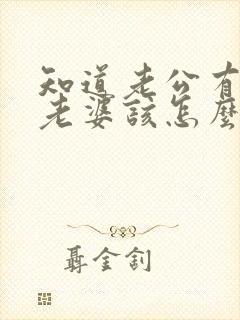 知道老公有
老婆該怎麼
聶金釗